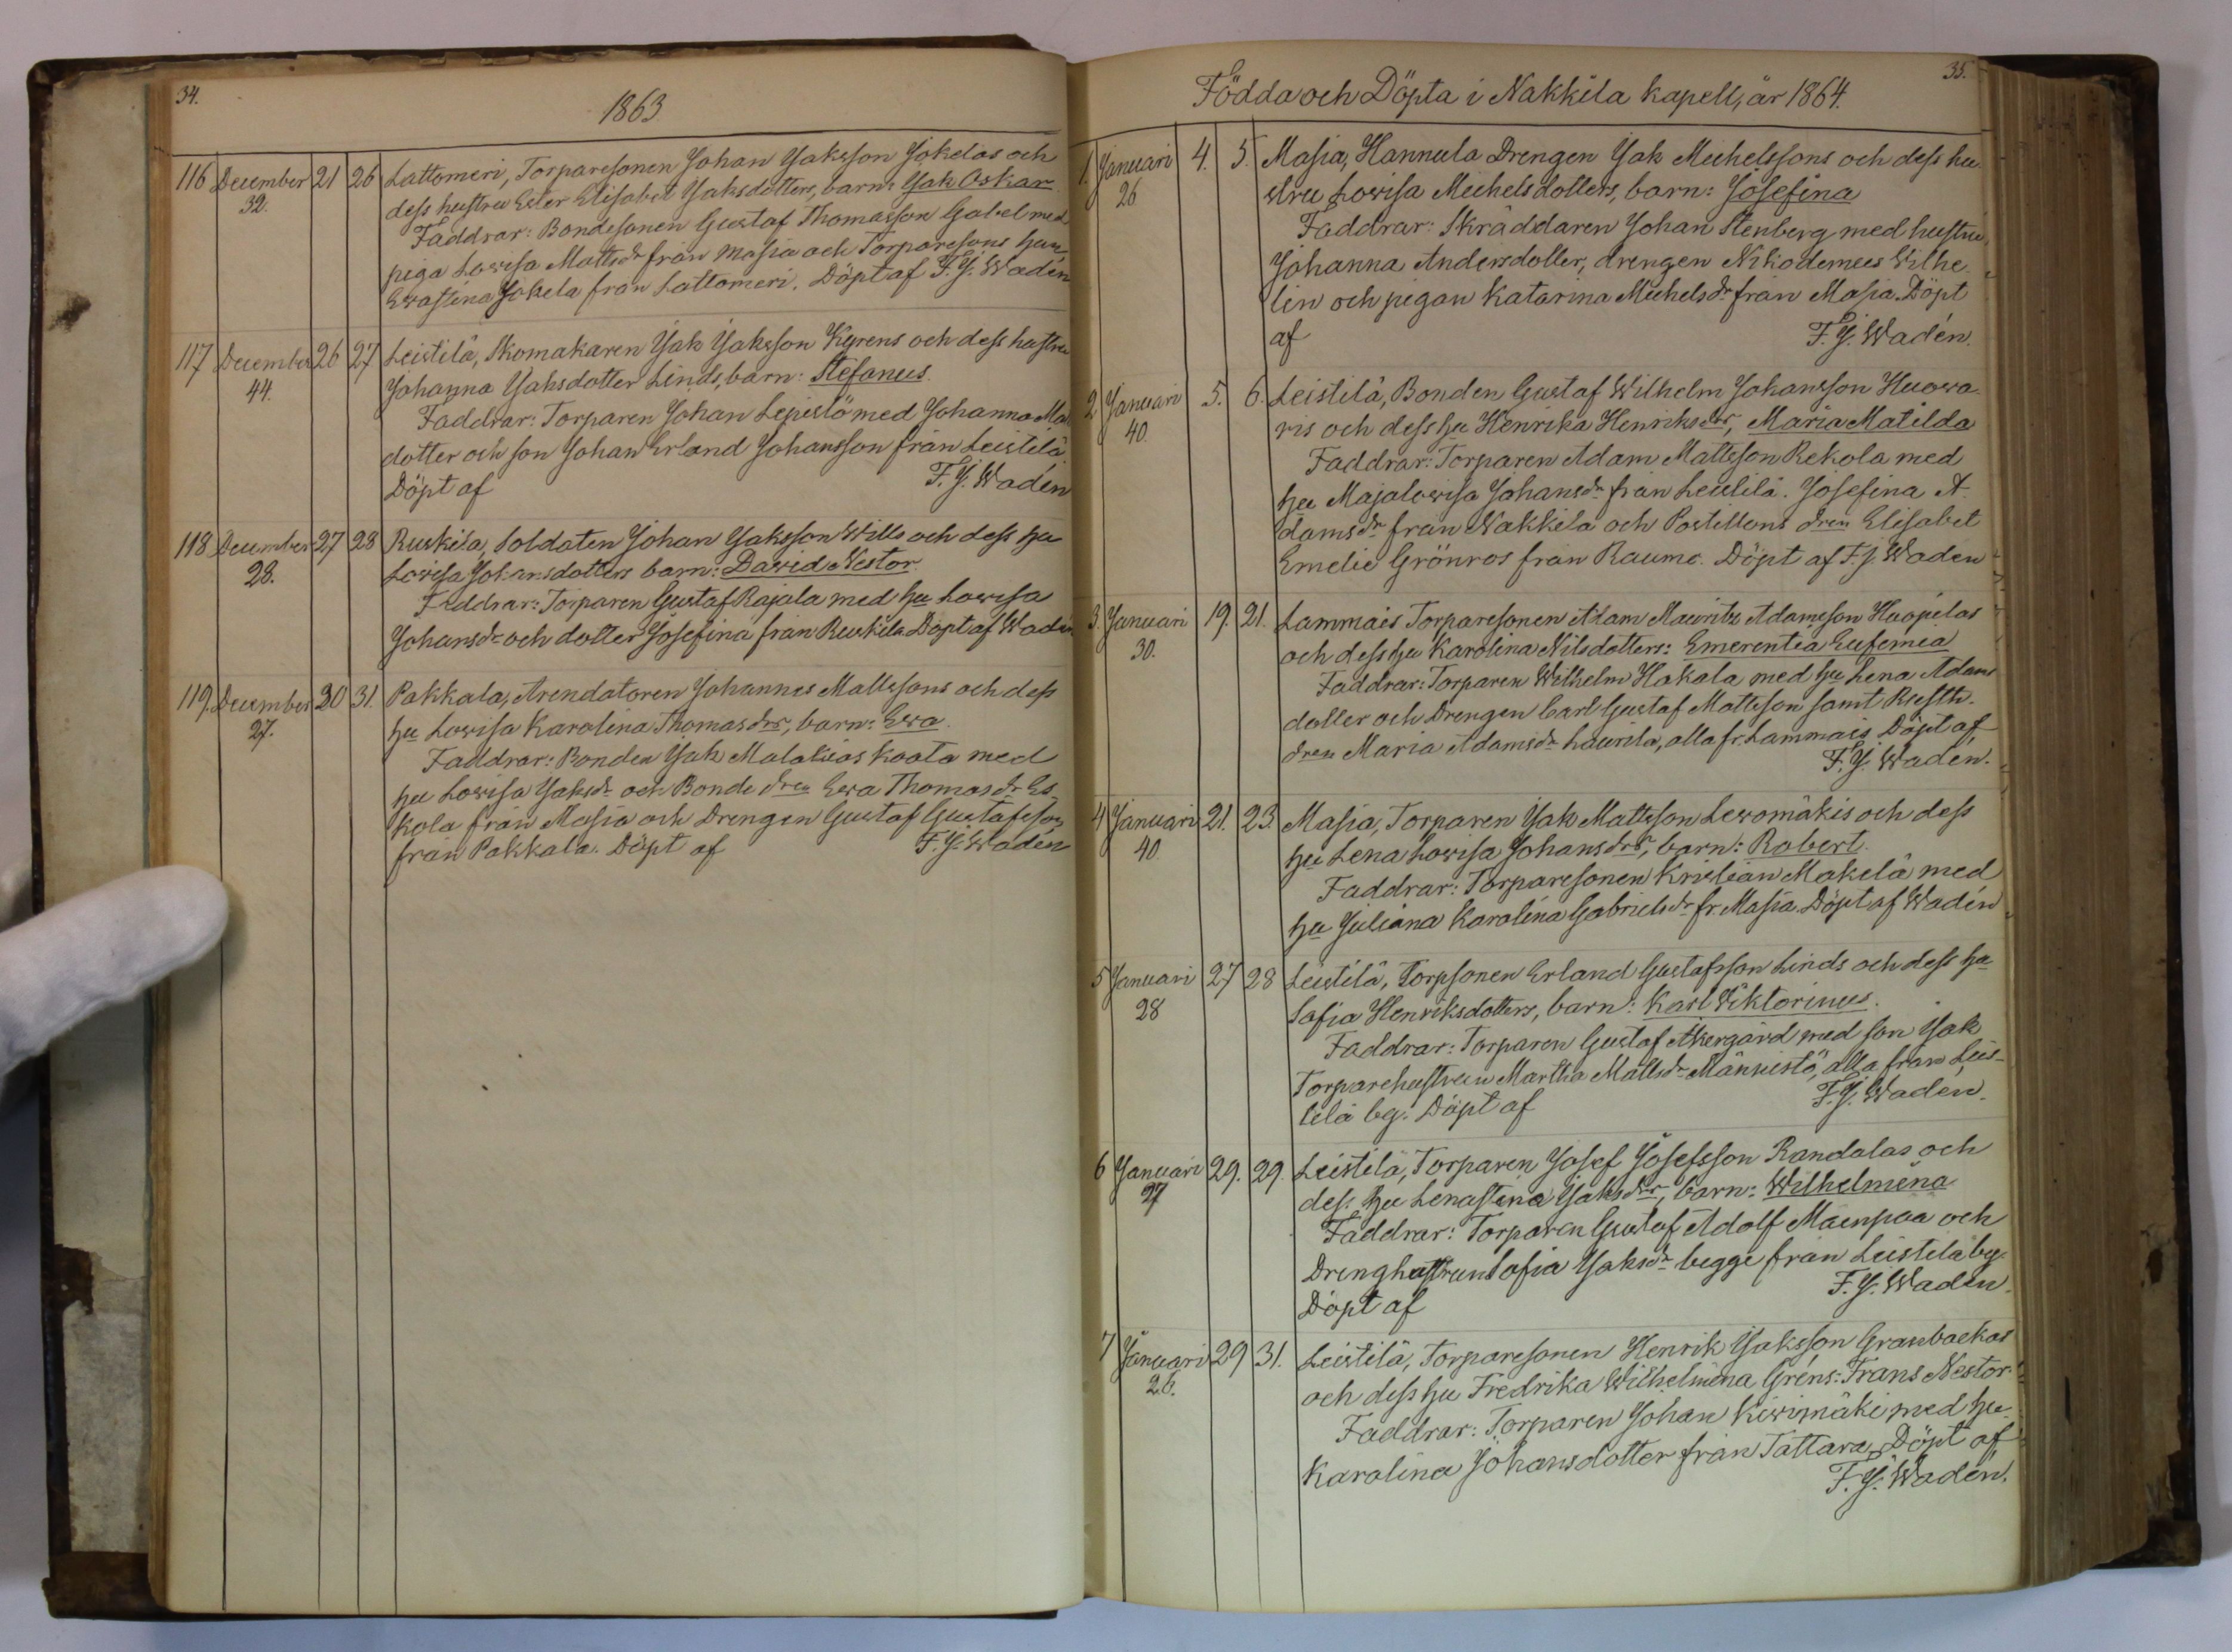 34.
1863
116 December 21 26 Lattomeri, Torparesonen Johan Jaksson Jokelas och
32. dess hustru Ester Elisabet Jaksdotters, barn: Jak Oskar
Faddrar: Bondesonen Gustaf Thomasson Gabel med
piga Lovisa Mattsdr från Masia och Torparesons hun
Evastina Jokela från Lattomeri. Döpt af F. J. Wadén
117 December 26 27 Leistilä, Skomakaren Jak Jaksson Kyrens och dess hustru
44. Johanna Jaksdotter Linds, barn: Stefanus.
Faddrar: Torparen Johan Lepistö med Johanna Ma
dotter och son Johan Erland Johansson från Leistilä
Döpt af F. J. Wadén
118 December 27 28 Ruskila, Soldaten Johan Jaksson Wills och dess hu
28. Lovisa Johansdotters barn: David Nestor.
Faddrar: Torparen Gustaf Rajala med hu Lovisa
Johansdr och dotter Josefina från Ruskila Döpt af Wadén
119. December 30 31. Pakkala, Arendatoren Johannes Mattssons och dess
27. hu Lovisa Karolina Thomasdrs, barn: Ewa.
Faddrar: Bonden Jak Malakias Kaata med
hu Lovisa Jaksdr och Bonde dren Ewa Thomasdr Es-
kola från Masia och Drengen Gustaf Gustafsson
från Pakkala. Döpt af F. J. Wadén
35.
Födda och Döpta i Nakkila kapell, år 1864.
1. Januari 4. 5. Masia, Hannula Drengen Jak Michelssons och dess hu
26 stru Lovisa Michelsdotters, barn: Josefina
Faddrar: Skräddaren Johan Stenberg med hustru
Johanna Andersdotter, drengen Nikodemus Wilhe
lin och pigan Katarina Michelsdr från Masia. Döpt
af F. J. Wadén.
2 Januari 5. 6. Leistilä, Bonden Gustaf Wilhelm Johansson Huova
40. ris och dess hu Henrika Henriksdrs, Maria Matilda
Faddrar: Torparen Adam Mattsson Rekola med
hu Majalovisa Johansdr från Leistilä. Josefina A-
damsdr från Nakkila och Postillons dren Elisabet
Emelie Grönros från Raumo. Döpt af F. J. Wadén
3. Januari 19. 21. Lammais Torparesonen Adam Mauritz Adamsson Huopilas
30. och dess hu Karolina Nilsdotters: Emerentia Eufemia
Faddrar: Torparen Wilhelm Hakala med hu Lena Adams
dotter och Drengen Carl Gustaf Mattsson samt Rusth.
dren Maria Adamsdr Laurila, alla fr. Lammais Döpt af
F. J. Wadén.
4 Januari 21. 23. Masia, Torparen Jak Mattsson Levomäkis och dess
40 hu Lena Lovisa Johansdrs, barn: Robert.
Faddrar: Torparesonen Kristian Makelä med
hu Juliana Karolina Gabrielsdr fr. Masia. Döpt af Wadén
5 Januari 27 28 Leistilä, Torpsonen Erland Gustafsson Linds och dess hu
28 Sofia Henriksdotters, barn: Karl Wiktorinus.
Faddrar: Torparen Gustaf Åkergård med son Jak
Torparehustrun Martha Mattsdr Männistö, alla från Leis-
tilä by. Döpt af F. J. Wadén.
6 Januari 29. 29. Leistilä, Torparen Josef Josefsson Randalas och
27 dess hu Lenastina Jaksdrs, barn: Wilhelmina
Faddrar: Torparen Gustaf Adolf Mäenpää och
Drenghustrun Sofia Jaksdr begge från Leistilä by.
Döpt af F. J. Wadén.
7 Januari 29 31. Leistilä, Torparesonen Henrik Jaksson Granbackas
26. och dess hu Fredrika Wilhelmina Gréns: Frans Nestor.
Faddrar: Torparen Johan Kivimäki med hu
Karolina Johansdotter från Tattara, Döpt af
F. J. Wadén.